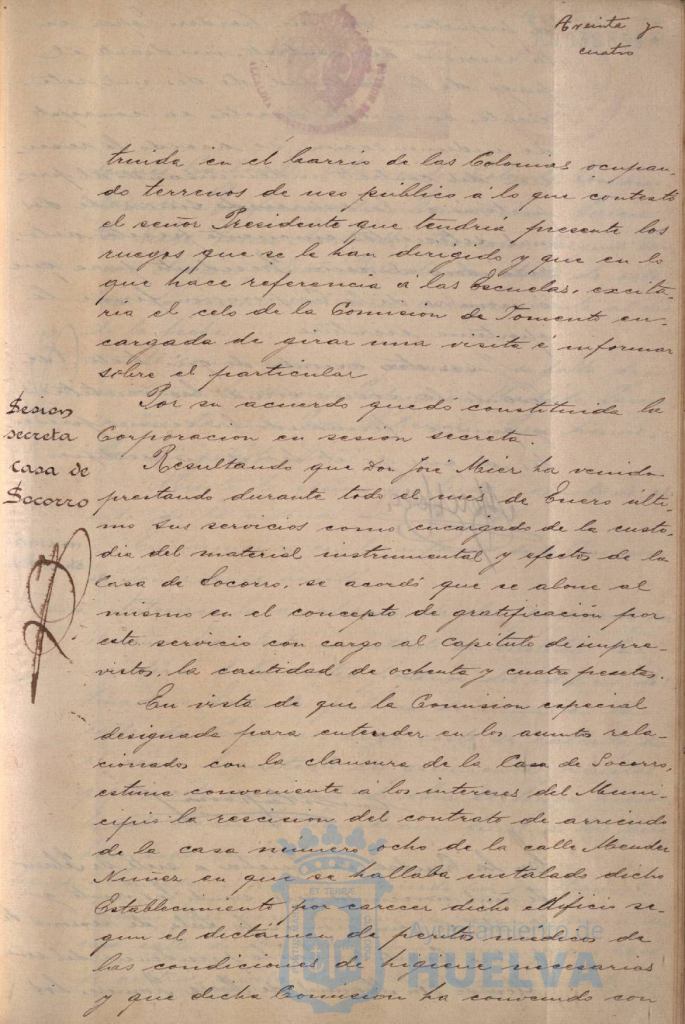 treinta y
cuatro
truida en el barrio de las Colonias ocupan-
do terrenos de uso público á lo que contestó
el señor Presidente que tendria presente los
ruegos que se le han dirigido y que en lo
que hace referencia á las Escuelas, excita-
ria el celo de la Comision de Fomento en-
cargada de girar una visita é informar
sobre el particular
Sesion
secreta
Por su acuerdo quedó constituida la
Corporacion en sesion secreta.
Casa de
Socorro
Resultando que Don José Mier ha venido
prestando durante todo el mes de Enero últi-
mo sus servicios como encargado de la custo-
dia del material instrumental y efectos de la
Casa de Socorro, se acordó que se abone al
mismo en el concepto de gratificación por
este servicio con cargo al Capitulo de impre-
vistos, la cantidad de ochenta y cuatro pesetas.
En vista de que la Comision especial
designada para entender en los asuntos rela-
cionados con la clausura de la Casa de Socorro,
estima conveniente á los intereses del Muni-
cipio la rescision del contrato de arriendo
de la casa número ocho de la calle Mendez
Nuñez en que se hallaba instalado dicho
Establecimiento por carecer dicho edificio se-
gun el dictámen de peritos médicos de
las condiciones de higiene necesarias
y que dicha Comision ha convenido con
Ayuntamiento de
HUELVA